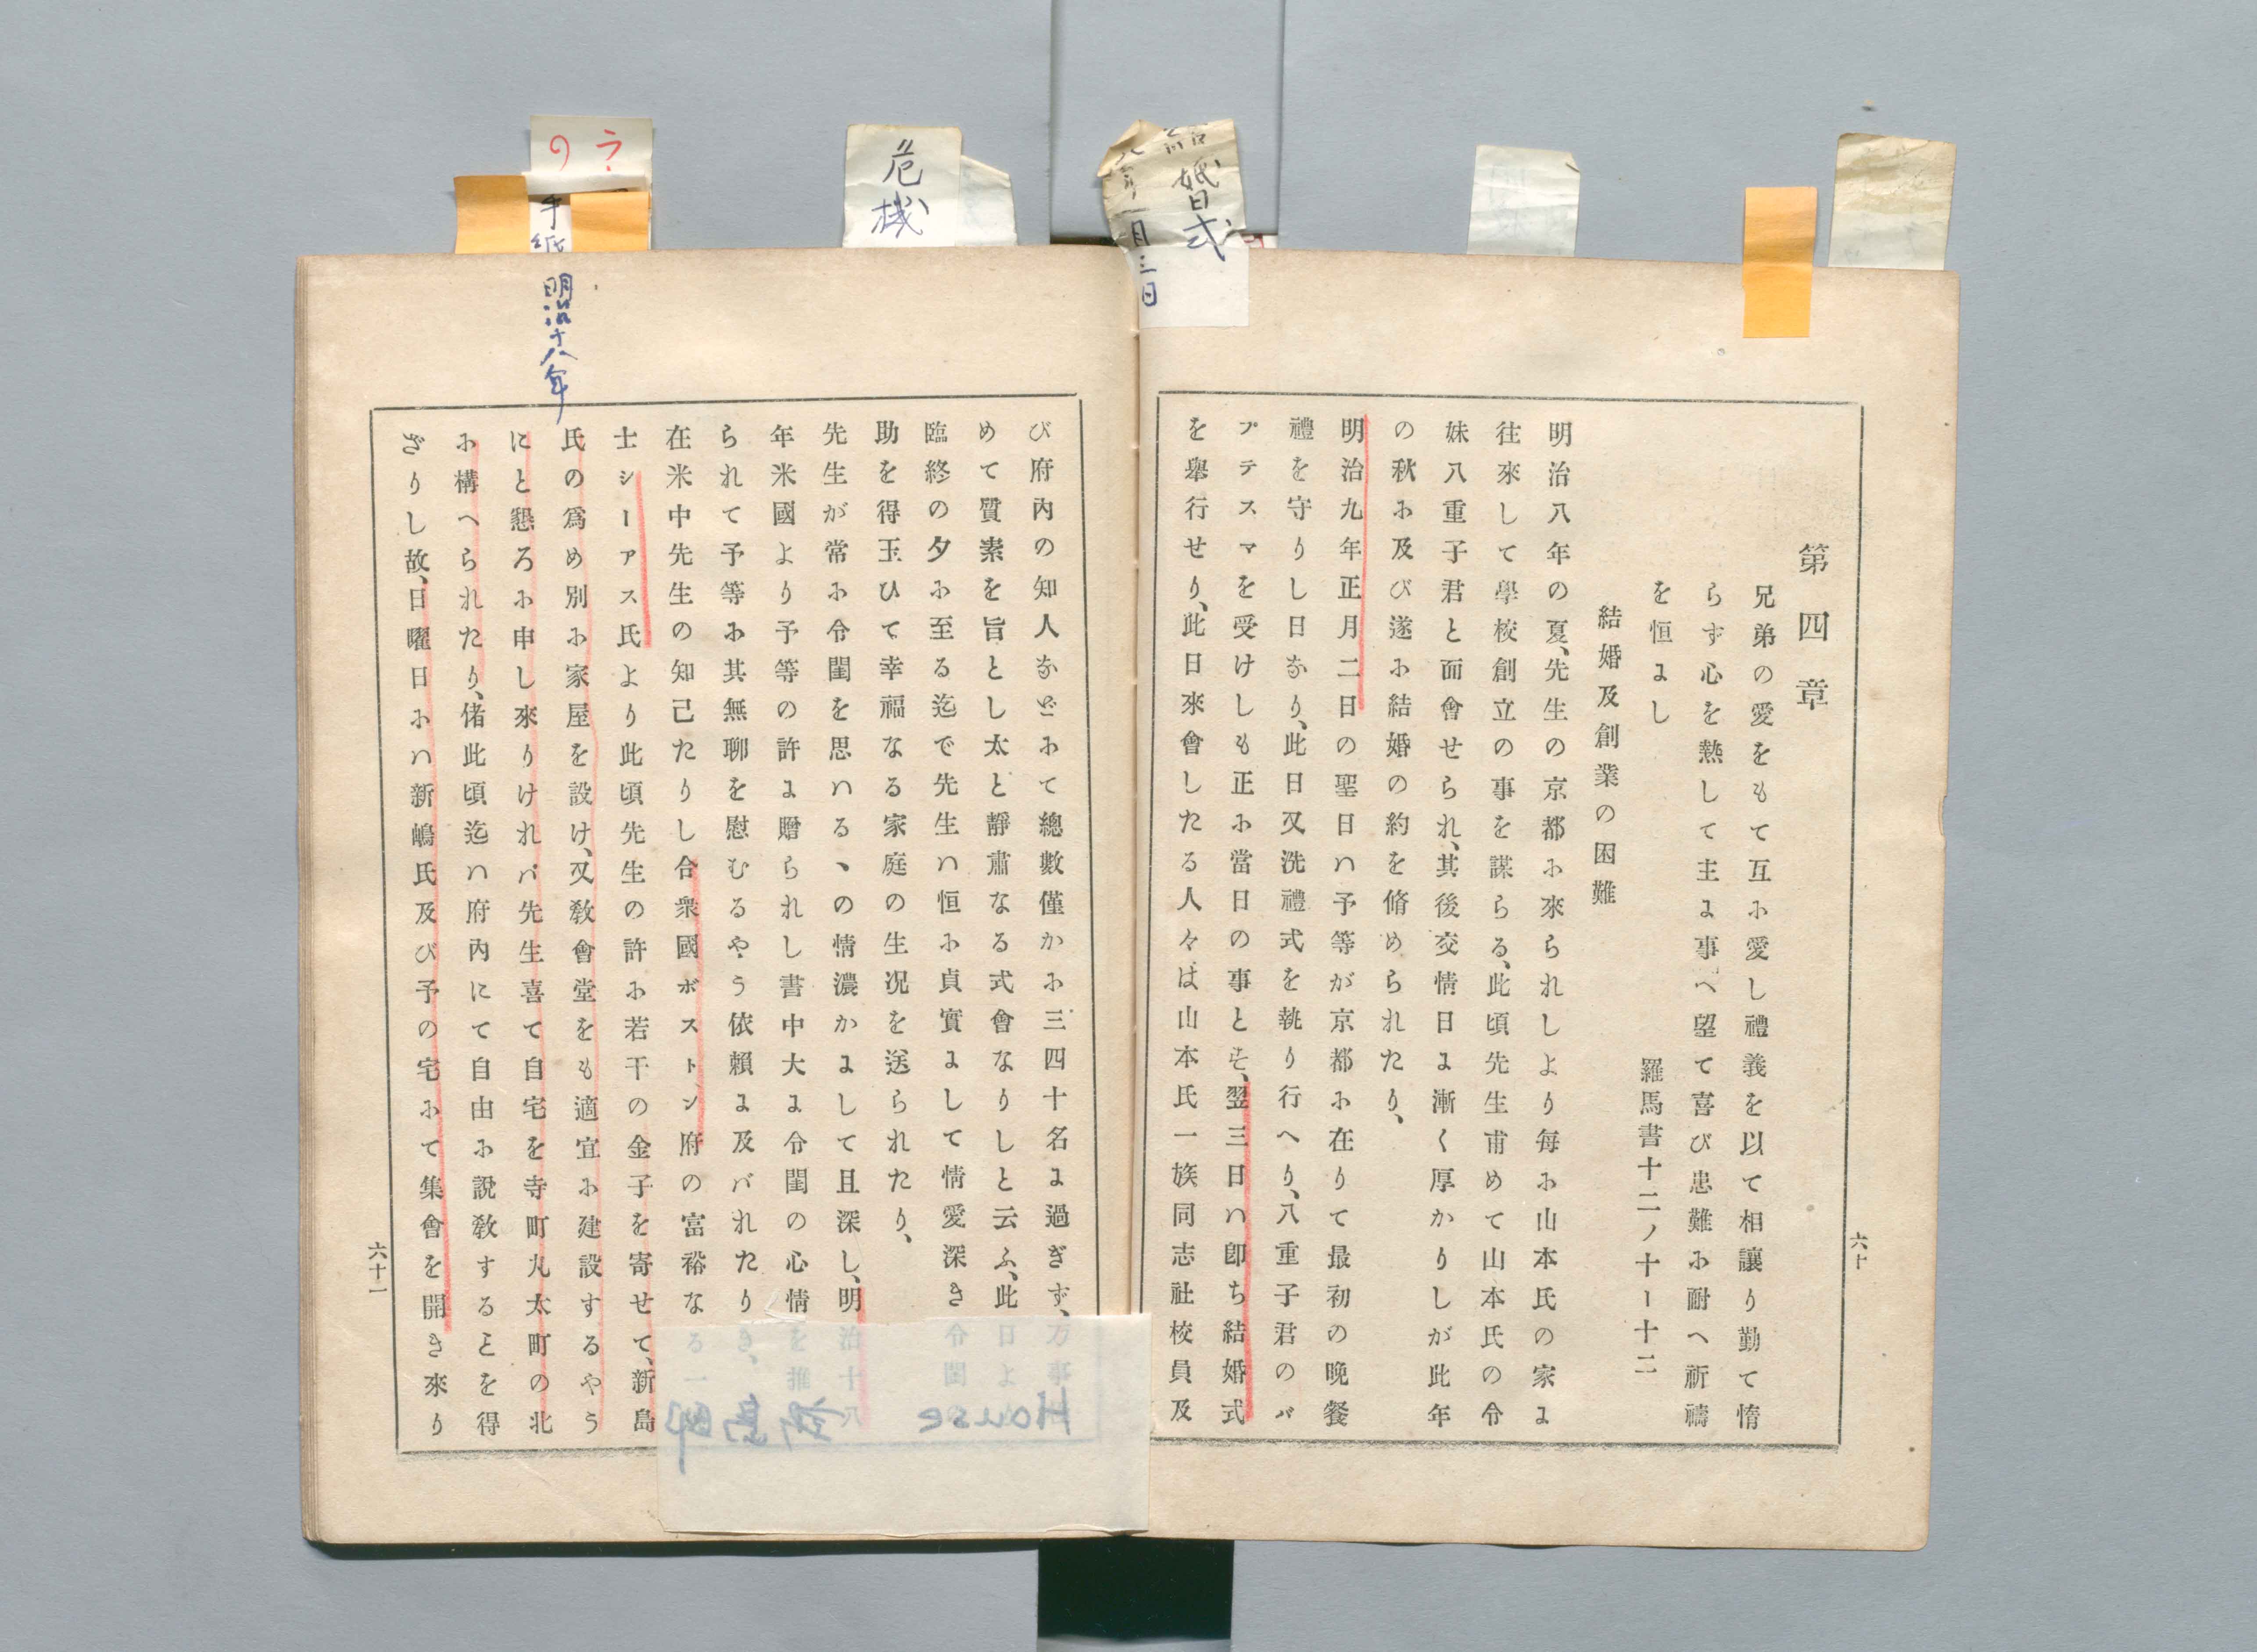 結婚式
月三日
危機
手紙
明治十八年
第四章
兄弟の愛をもて互に愛し禮義を以て相讓り勤て惰
らず心を熱して主に事へ望て喜び患難に耐へ祈禱
を恒にし
羅馬書十二ノ十ー十二
結婚及創業の困難
明治八年の夏、先生の京都に來られしより毎に山本氏の家に
往來して學校創立の事を謀らる、此頃先生甫めて山本氏の令
妹八重子君と面會せられ、其後交情日に漸く厚かりしが此年
の秋に及び遂に結婚の約を脩められたり、
明治九年正月二日の聖日ハ予等が京都に在りて最初の晩餐
禮を守りし日なり、此日又洗禮式を執り行へり、八重子君のバ
プテスマを受けしも正に當日の事とぞ、翌三日ハ卽ち結婚式
を舉行せり、此日來會したる人々は山本氏一族同志社校員及
六十
び府內の知人などにて總數僅かに三四十名に過ぎず、万事
めて質素を旨とし太と靜肅なる式會なりしと云ふ、此日よ
臨終の夕に至る迄で先生ハ恒に貞實にして情愛深き令閨
助を得玉ひて幸福なる家庭の生况を送られたり、
先生が常に令閨を思ハるゝの情濃かにして且深し、明治十八
年米國より予等の許に贈られし書中大に令閨の心情を推
られて予等に其無聊を慰むるやう依賴に及バれたりき、
在米中先生の知己たりし合衆國ボストン府の富裕なる一
士シーアス氏より此頃先生の許に若干の金子を寄せて、新島
氏の爲め別に家屋を設け、又敎會堂をも適宜に建設するやう
にと懇ろに申し來りけれバ先生喜て自宅を寺町丸太町の北
に構へられたり、偖此頃迄ハ府內にて自由に說敎するとを得
ざりし故、日曜日にハ新嶋氏及び予の宅にて集會を開き來り
六十一
House 新島邸